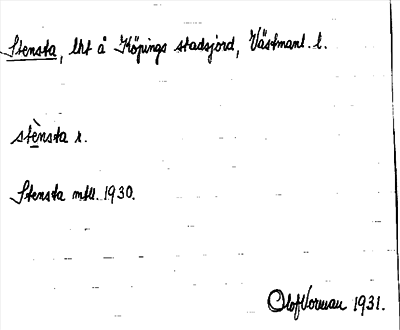 Stensta, lht å Köpings stadsjord, Västmanl. l.
stènsta r.
Stensta mtl. 1930.
Olof Vorman 1931.